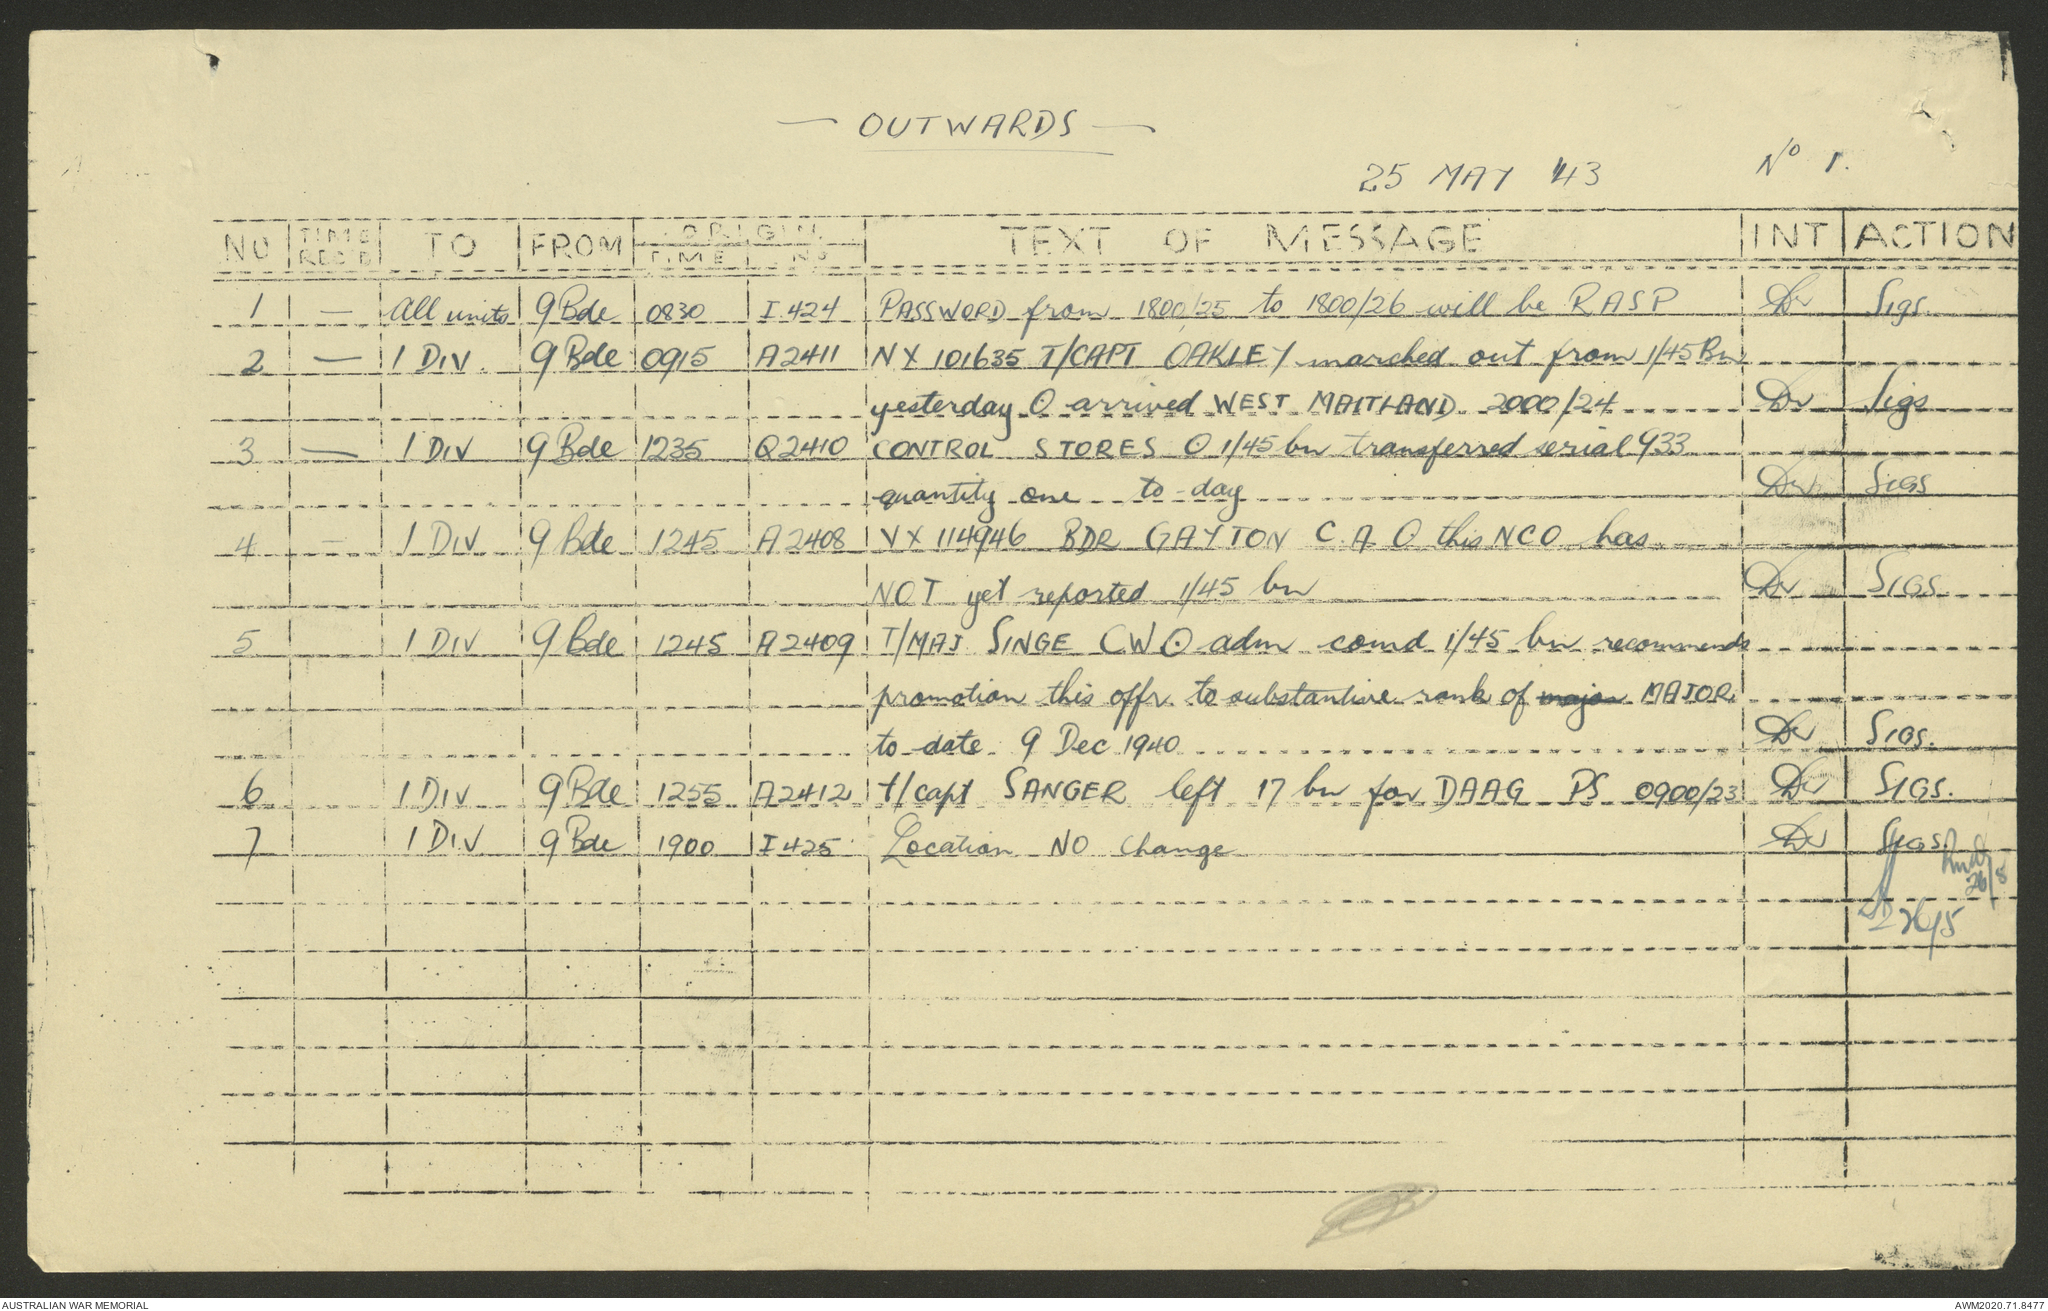 — OUTWARDS —
25 MAY 43 No 1.
NO TIME REC'D TO FROM ORIGIN TIME NO TEXT OF MESSAGE INT ACTION
1 — All units 9 Bde 0830 I 424 PASSWORD from 1800/25 to 1800/26 will be RASP Dw Sigs.
2 — 1 DIV. 9 Bde 0915 A2411 NX 101635 T/CAPT OAKLEY marched out from 1/45 Bn
yesterday O arrived WEST MAITLAND 2000/24 Dw Sigs
3 — 1 DIV 9 Bde 1235 Q2410 CONTROL STORES O 1/45 bn transferred serial 933
quantity one to-day Dw SIGS
4 — 1 DIV 9 Bde 1245 A2408 VX 114946 BDR GAYTON C.A O this NCO has
NOT yet reported 1/45 bn Dw SIGS.
5 1 DIV 9 Bde 1245 A2409 T/MAJ SINGE CW O adm comd 1/45 bn recommends
promotion this offr to substantive rank of major MAJOR
to date 9 Dec 1940 Dw SIGS.
6 1 DIV 9 Bde 1255 A2412 t/capt SANGER left 17 bn for DAAG PS 0900/23 Dw SIGS.
7 1 DIV 9 Bde 1900 I 425 Location NO change Dw SIGS.
26/5
AUSTRALIAN WAR MEMORIAL AWM2020.71.8477